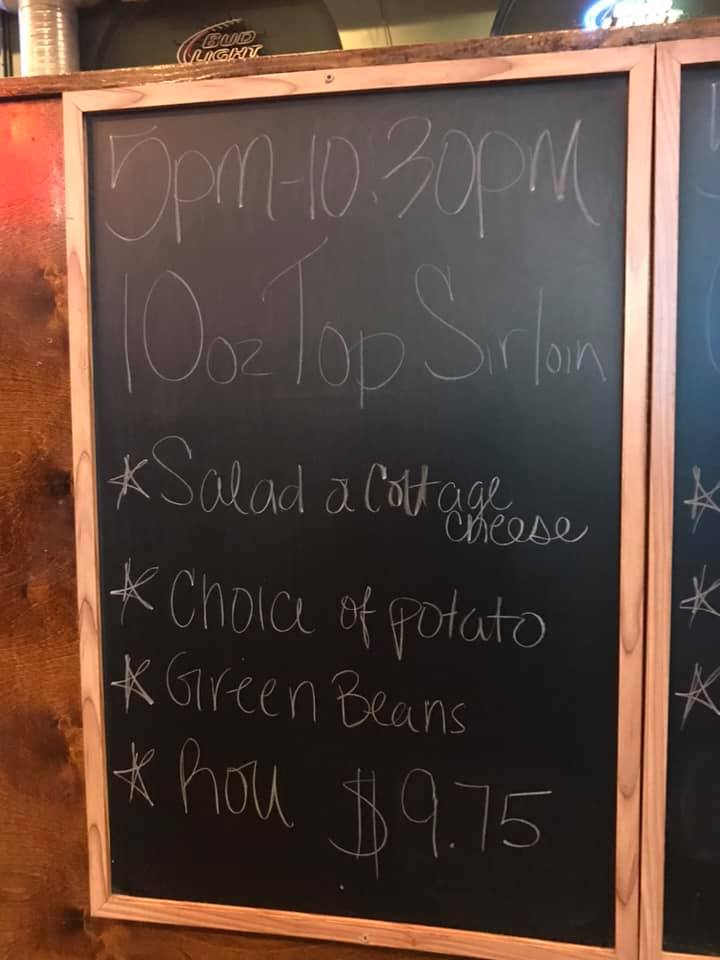 BUD
LIGHT
5pm-10:30pm
10oz Top Sirloin
*Salad a Cottage
cheese
*Choice of potato
*Green Beans
*Roll $9.75